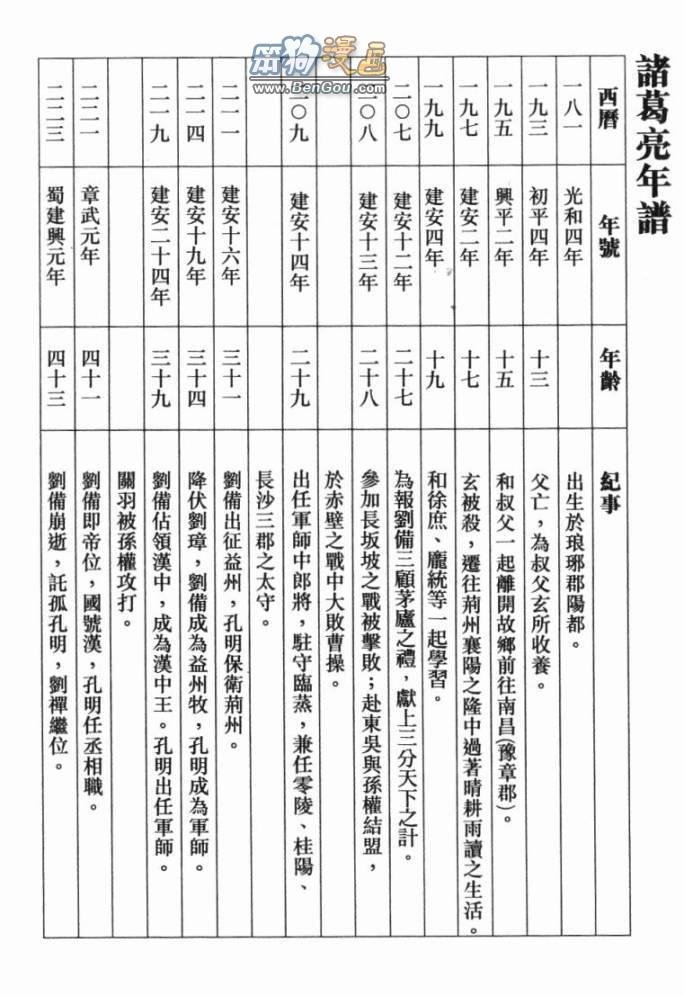 笨狗漫画
www.BenGou.com
諸葛亮年譜
西曆 年號 年齡 紀事
一八一 光和四年 出生於琅琊郡陽都。
一九三 初平四年 十三 父亡，為叔父玄所收養。
一九五 興平二年 十五 和叔父一起離開故鄉前往南昌(豫章郡)。
一九七 建安二年 十七 玄被殺，遷往荊州襄陽之隆中過著晴耕雨讀之生活。
一九九 建安四年 十九 和徐庶、龐統等一起學習。
二〇七 建安十二年 二十七 為報劉備三顧茅廬之禮，獻上三分天下之計。
二〇八 建安十三年 二十八 參加長坂坡之戰被擊敗；赴東吳與孫權結盟，
於赤壁之戰中大敗曹操。
二〇九 建安十四年 二十九 出任軍師中郎將，駐守臨蒸，兼任零陵、桂陽、
長沙三郡之太守。
二一一 建安十六年 三十一 劉備出征益州，孔明保衛荊州。
二一四 建安十九年 三十四 降伏劉璋，劉備成為益州牧，孔明成為軍師。
二一九 建安二十四年 三十九 劉備佔領漢中，成為漢中王。孔明出任軍師。
關羽被孫權攻打。
二二一 章武元年 四十一 劉備即帝位，國號漢，孔明任丞相職。
二二三 蜀建興元年 四十三 劉備崩逝，託孤孔明，劉禪繼位。